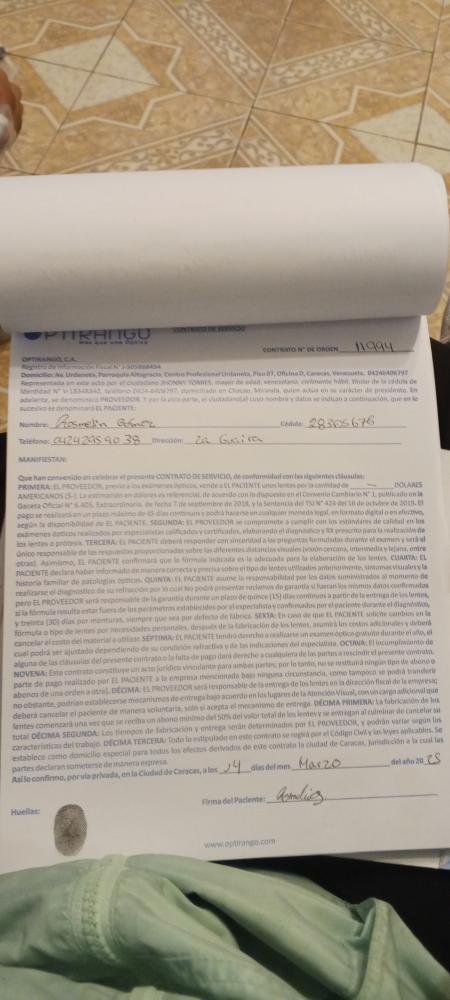 OPTIRANGO
Más que una óptica
CONTRATO DE SERVICIO
CONTRATO N° DE ORDEN 11994
OPTIRANGO, C.A.
Registro de Informacion Fiscal N° J-505898454
Domicilio: Av. Urdaneta, Parroquia Altagracia, Centro Profesional Urdaneta, Piso 07, Oficina D, Caracas, Venezuela. 04246406797
Representada en este acto por el ciudadano JHONNY TORRES, mayor de edad, venezolano, civilmente hábil, titular de la cédula de
Identidad N° V-18348342, teléfono 0424-6406797, domiciliado en Chacao, Miranda, quien actua en su carácter de presidente. En
adelante, se denominará PROVEEDOR. Y por la otra parte, el ciudadano(a) cuyo nombre y datos se indican a continuación, que en lo
sucesivo se denominará EL PACIENTE:
Nombre: Rosmelin Gómez Cédula: 28305676
Teléfono: 04242959038 Dirección: La Guaira
MANIFIESTAN:
Que han convenido en celebrar el presente CONTRATO DE SERVICIO, de conformidad con las siguientes cláusulas:
PRIMERA: EL PROVEEDOR, previo a los exámenes ópticos, vende a EL PACIENTE unos lentes por la cantidad de DÓLARES
AMERICANOS ($-). La estimación en dólares es referencial, de acuerdo con lo dispuesto en el Convenio Cambiario N° 1, publicado en la
Gaceta Oficial N° 6.405, Extraordinario, de fecha 7 de septiembre de 2018, y la Sentencia del TSJ N° 424 del 16 de octubre de 2019. El
pago se realizará en un plazo máximo de 45 días continuos y podrá hacerse en cualquier moneda legal, en formato digital o en efectivo,
según la disponibilidad de EL PACIENTE. SEGUNDA: EL PROVEEDOR se compromete a cumplir con los estándares de calidad en los
exámenes ópticos realizados por especialistas calificados y certificados, elaborando el diagnóstico y RX prescrito para la realización de
los lentes o prótesis. TERCERA: EL PACIENTE deberá responder con sinceridad a las preguntas formuladas durante el examen y será el
único responsable de las respuestas proporcionadas sobre las diferentes distancias visuales (visión cercana, intermedia y lejana, entre
otras). Asimismo, EL PACIENTE confirmará que la fórmula indicada es la adecuada para la elaboración de los lentes. CUARTA: EL
PACIENTE declara haber informado de manera correcta y precisa sobre el tipo de lentes utilizados anteriormente, síntomas visuales y la
historia familiar de patologías ópticas. QUINTA: EL PACIENTE asume la responsabilidad por los datos suministrados al momento de
realizarse el diagnóstico de su refracción por lo cual No podrá presentar reclamos de garantía si fueran los mismos datos confirmados
pero EL PROVEEDOR será responsable de la garantía durante un plazo de quince (15) días continuos a partir de la entrega de los lentes,
si la fórmula resulta estar fuera de los parámetros establecidos por el especialista y confirmados por el paciente durante el diagnóstico,
y treinta (30) días por monturas, siempre que sea por defecto de fábrica. SEXTA: En caso de que EL PACIENTE solicite cambios en la
fórmula o tipo de lentes por necesidades personales, después de la fabricación de los lentes, asumirá los costos adicionales y deberá
cancelar el costo del material a utilizar. SÉPTIMA: EL PACIENTE tendrá derecho a realizarse un examen óptico gratuito durante el año, el
cual podrá ser ajustado dependiendo de su condición refractiva y de las indicaciones del especialista. OCTAVA: El incumplimiento de
alguna de las cláusulas del presente contrato o la falta de pago dará derecho a cualquiera de las partes a rescindir el presente contrato.
NOVENA: Este contrato constituye un acto jurídico vinculante para ambas partes; por lo tanto, no se restituirá ningún tipo de abono o
parte de pago realizado por EL PACIENTE a la empresa mencionada bajo ninguna circunstancia, como tampoco se podrá transferir
abonos de una orden a otra). DÉCIMA: EL PROVEEDOR será responsable de la entrega de los lentes en la dirección fiscal de la empresa;
no obstante, podrían establecerse mecanismos de entrega bajo acuerdo en los lugares de la Atención Visual, con un cargo adicional que
deberá cancelar el paciente de manera voluntaria, solo si acepta el mecanismo de entrega. DÉCIMA PRIMERA: La fabricación de los
lentes comenzará una vez que se reciba un abono mínimo del 50% del valor total de los lentes y se entregan al culminar de cancelar su
total DÉCIMA SEGUNDA: Los tiempos de fabricación y entrega serán determinados por EL PROVEEDOR, y podrán variar según las
características del trabajo. DÉCIMA TERCERA: Todo lo estipulado en este contrato se regirá por el Código Civil y las leyes aplicables. Se
establece como domicilio especial para todos los efectos derivados de este contrato la ciudad de Caracas, jurisdicción a la cual las
partes declaran someterse de manera expresa.
Así lo confirmo, por vía privada, en la Ciudad de Caracas, a los 14 días del mes Marzo del año 2025
Huellas:
Firma del Paciente:
www.optirango.com